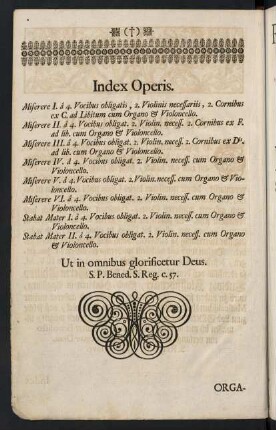 (†)
Index Operis.
Miserere I. â 4. Vocibus obligatis, 2. Violinis necessariis, 2. Cornibus
ex C. ad Libitum cum Organo & Violoncello.
Miserere II. â 4. Vocibus obligat. 2. Violin. necess. 2. Cornibus ex F.
ad lib. cum Organo & Violoncello.
Miserere III. â 4. Vocibus obligat. 2. Violin. necess. 2. Cornibus ex D#.
ad lib. cum Organo & Violoncello.
Miserere IV. â 4. Vocibus obligat. 2. Violin. necess. cum Organo &
Violoncello.
Miserere V. â 4. Vocibus obligat. 2. Violin. necess. cum Organo & Vio-
loncello.
Miserere VI. â 4. Vocibus obligat. 2. Violin. necess. cum Organo &
Violoncello.
Stabat Mater I. â 4. Vocibus obligat. 2. Violin. necess. cum Organo &
Violoncello.
Stabat Mater II. â 4. Vocibus obligat. 2. Violin. necess. cum Organo
& Violoncello.
Ut in omnibus glorificetur Deus.
S. P. Bened. S. Reg. c. 57.
ORGA-